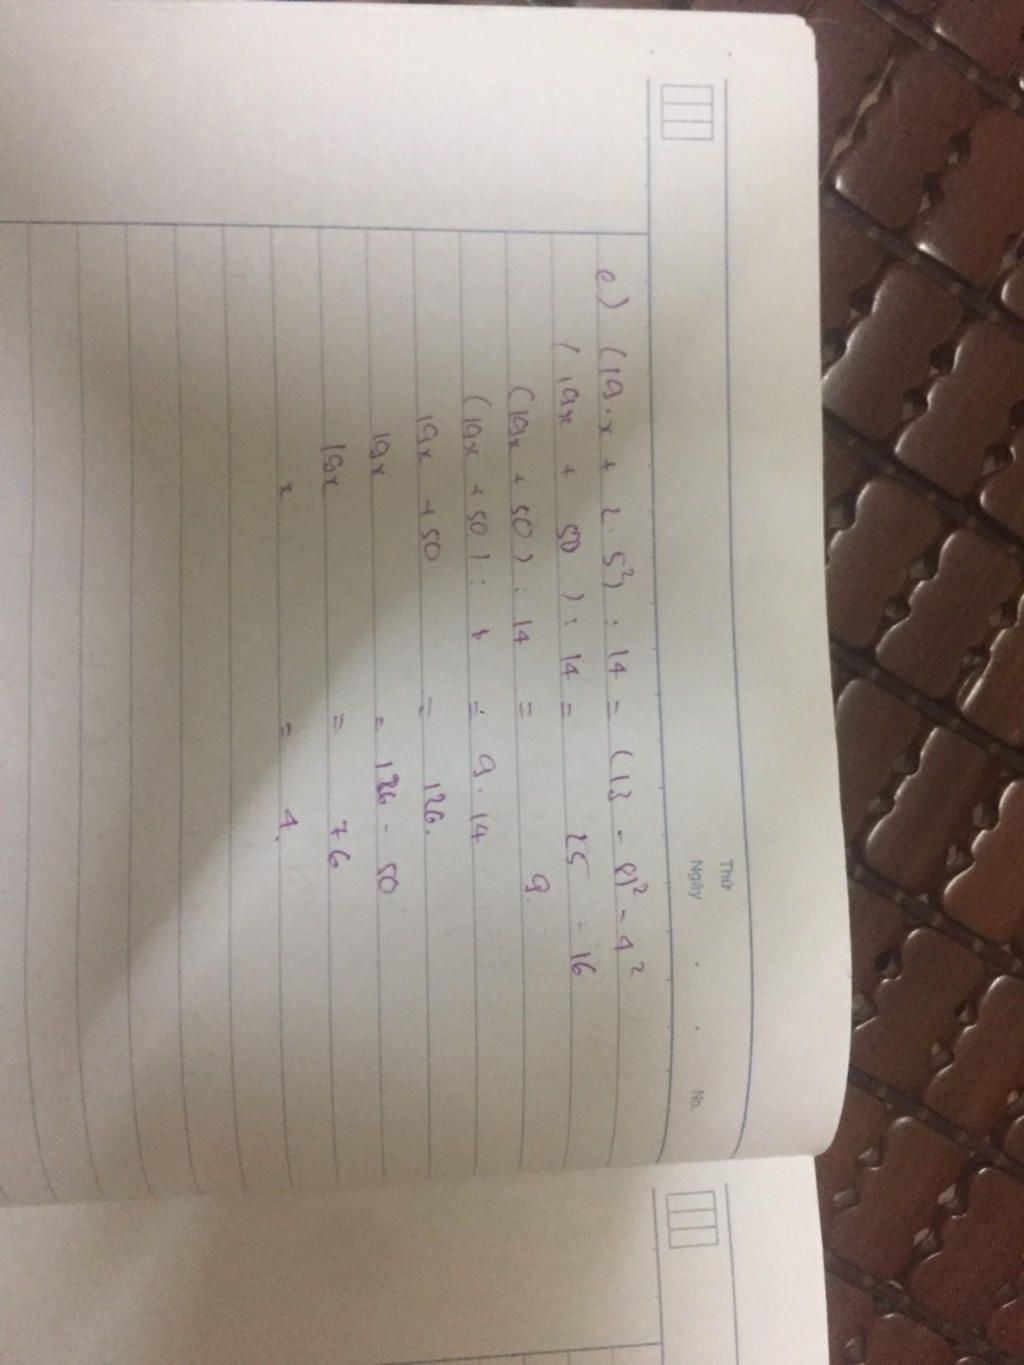 Thứ
Ngày . . No.
e) (19.x + 2.5²) : 14 = (13 - 8)² - 4²
( 19x + 50 ) : 14 = 25 - 16
(19x + 50) : 14 = 9.
(19x + 50) : = 9.14
19x + 50 = 126.
19x = 126 - 50
19x = 76
x = 4.